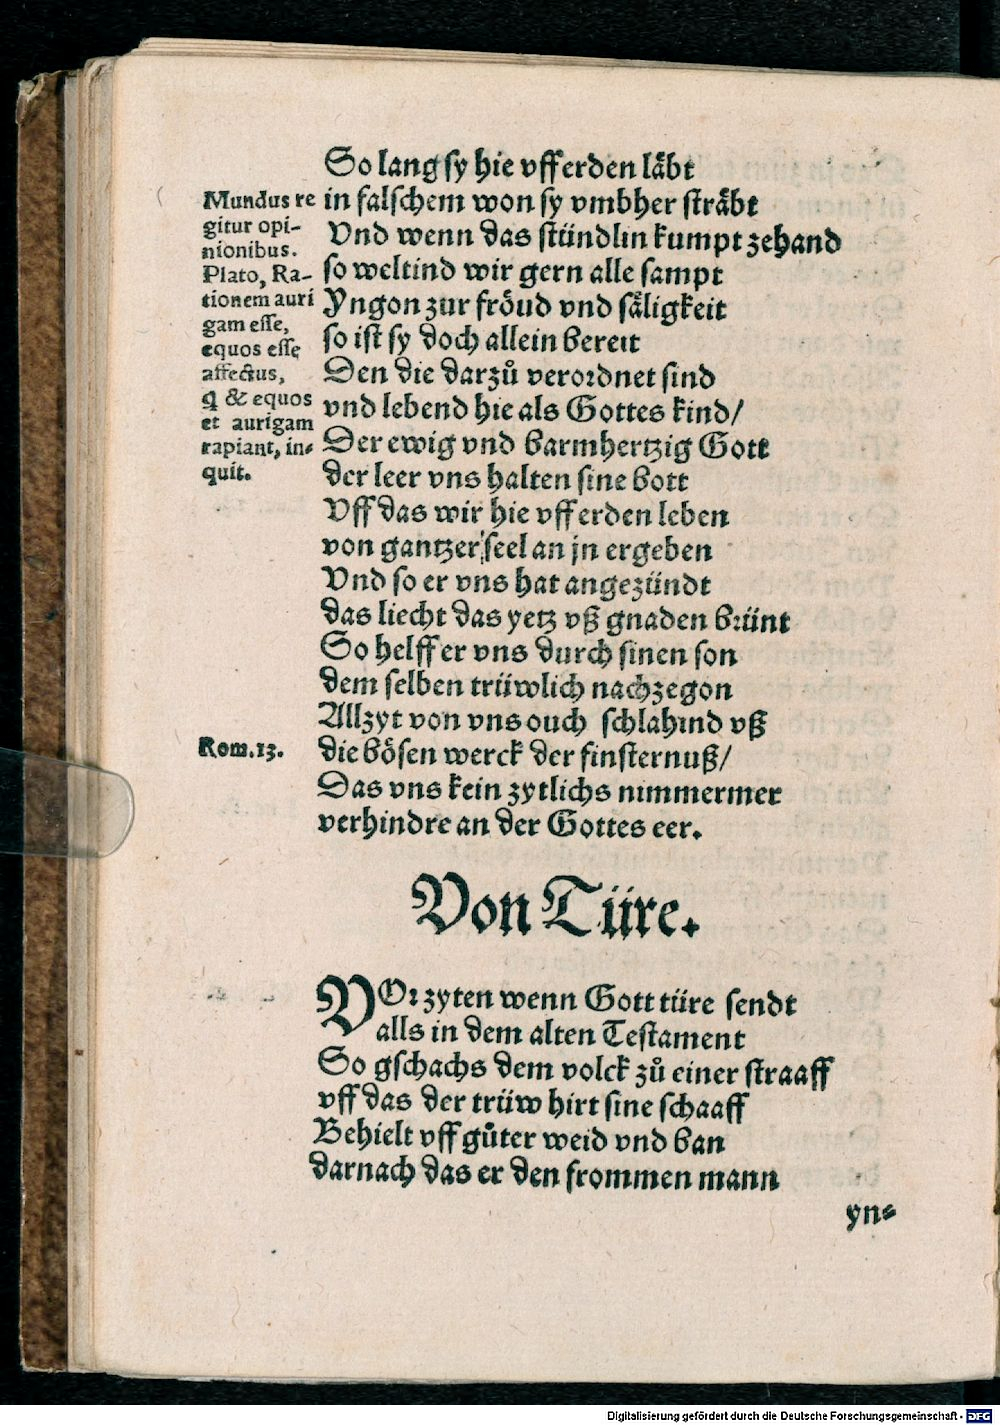 So lang sy hie vff erden låbt
in falschem won sy vmbher stråbt
Vnd wenn das stündlin kumpt zehand
so weltind wir gern alle sampt
Yngon zur fröud vnd såligkeit
so ist sy doch allein bereit
Den die darzů verordnet sind
vnd lebend hie als Gottes kind/
Der ewig vnd barmhertzig Gott
der leer vns halten sine bott
Vff das wir hie vff erden leben
von gantzer seel an jn ergeben
Vnd so er vns hat angezündt
das liecht das yetz vß gnaden brünt
So helff er vns durch sinen son
dem selben trüwlich nachzegon
Allzyt von vns ouch schlahind vß
die bösen werck der finsternuß/
Das vns kein zytlichs nimmermer
verhindre an der Gottes eer.
Mundus re
gitur opi-
nionibus.
Plato, Ra-
tionem auri
gam esse,
equos esse
affectus,
q̃ & equos
et aurigam
rapiant, in-
quit.
Rom.13.
Von Türe.
VOr zyten wenn Gott türe sendt
alls in dem alten Testament
So gschachs dem volck zů einer straaff
vff das der trüw hirt sine schaaff
Behielt vff gůter weid vnd ban
darnach das er den frommen mann
yn-
Digitalisierung gefördert durch die Deutsche Forschungsgemeinschaft - DFG